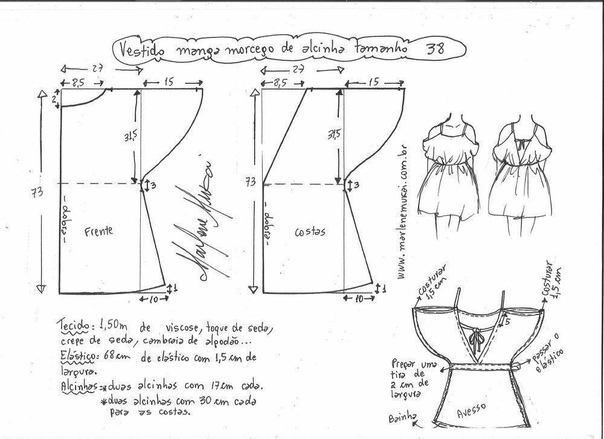 Vestido manga morcego de alcinha tamanho 38
27
8,5
15
2
31,5
73
3
-dobra-
Frente
1
10
Marlene Mukai
27
8,5
15
31,5
73
3
-dobra-
costas
1
10
www.marlenemukai.com.br
Tecido: 1,50m de viscose, toque de seda,
crepe de seda, cambraia de algodão...
Elástico: 68cm de elástico com 1,5 cm de
largura.
Alcinhas: *duas alcinhas com 17cm cada.
*duas alcinhas com 30 cm cada
para as costas.
costurar
1,5 cm
costurar
1,5 cm
1,5
Pregar uma
tira de
2 cm de
largura
passar o
elástico
Avesso
Bainha